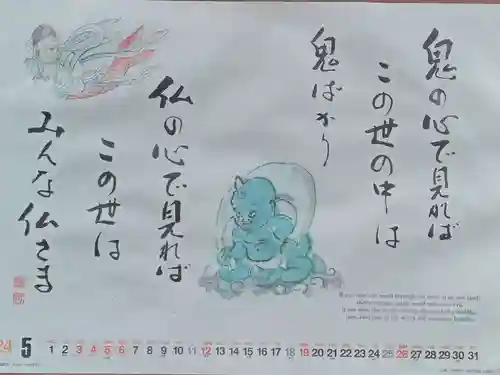 鬼の心で見れば
この世の中は
鬼ばかり
仏の心で見れば
この世は
みんな仏さま
24 5 1 2 3 4 5 6 7 8 9 10 11 12 13 14 15 16 17 18 19 20 21 22 23 24 25 26 27 28 29 30 31